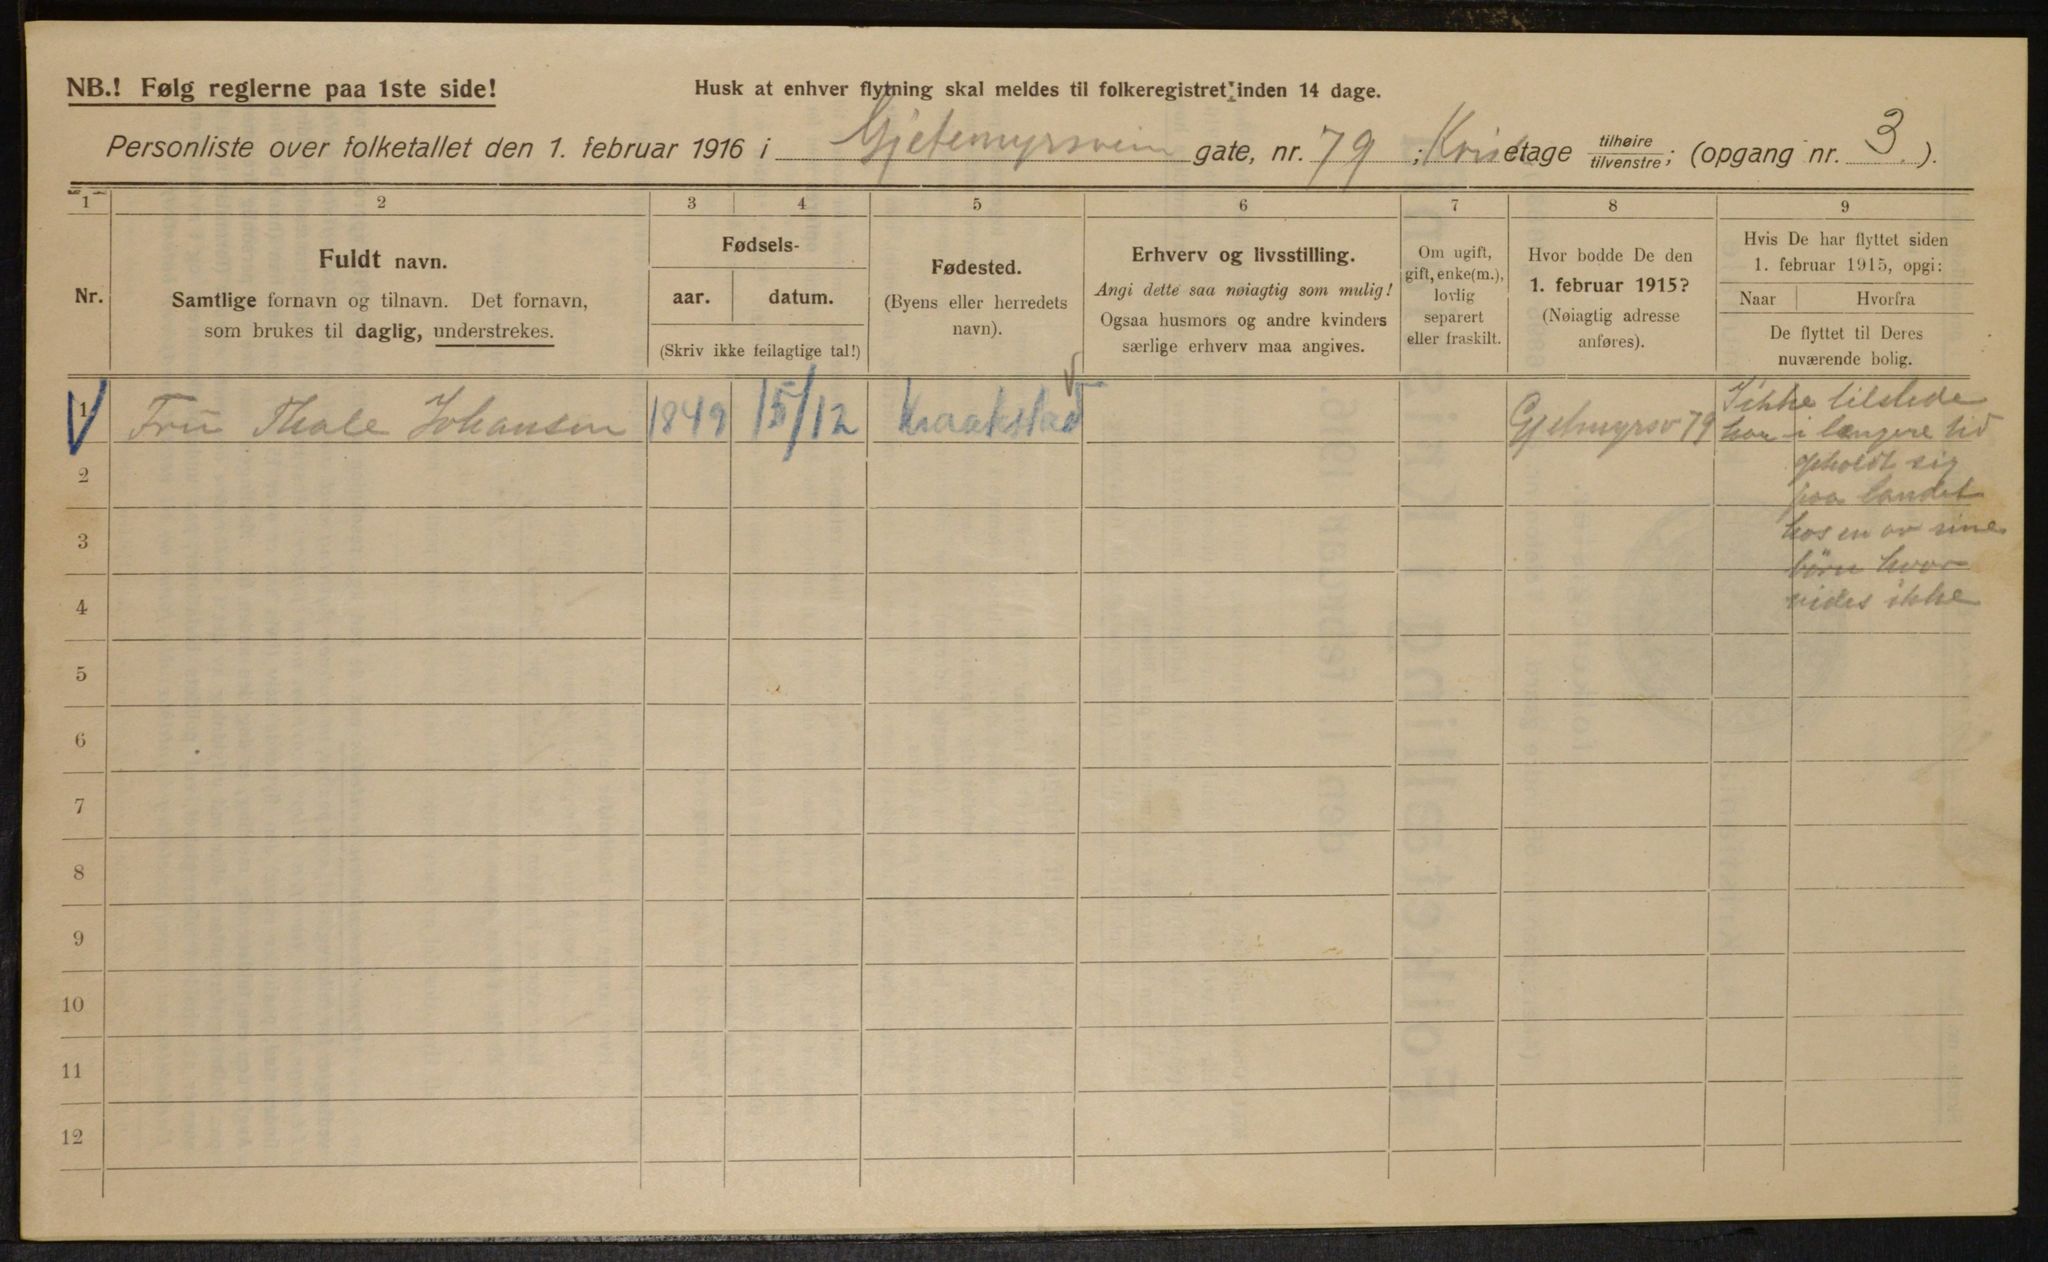 NB.! Følg reglerne paa 1ste side!
Husk at enhver flytning skal meldes til folkeregistret inden 14 dage.
Personliste over folketallet den 1. februar 1916 i Gjetemyrsvein gate, nr. 79 ; Kvist etage tilhøire/tilvenstre; (opgang nr. 3.).
1 2 3 4 5 6 7 8 9
Nr.
Fuldt navn.
Samtlige fornavn og tilnavn. Det fornavn,
som brukes til daglig, understrekes.
Fødsels-
aar. datum.
(Skriv ikke feilagtige tal!)
Fødested.
(Byens eller herredets
navn).
Erhverv og livsstilling.
Angi dette saa nøiagtig som mulig!
Ogsaa husmors og andre kvinders
særlige erhverv maa angives.
Om ugift,
gift, enke(m.),
lovlig
separert
eller fraskilt.
Hvor bodde De den
1. februar 1915?
(Nøiagtig adresse
anføres).
Hvis De har flyttet siden
1. februar 1915, opgi:
Naar Hvorfra
De flyttet til Deres
nuværende bolig.
1 Fru Thale Johansen 1849 15/12 Kraakstad Gjetmyrsv 79
Ikke tilstede
har i længere tid
opholdt sig
paa landet
hos en av sine
børn hvor
vides ikke
2
3
4
5
6
7
8
9
10
11
12